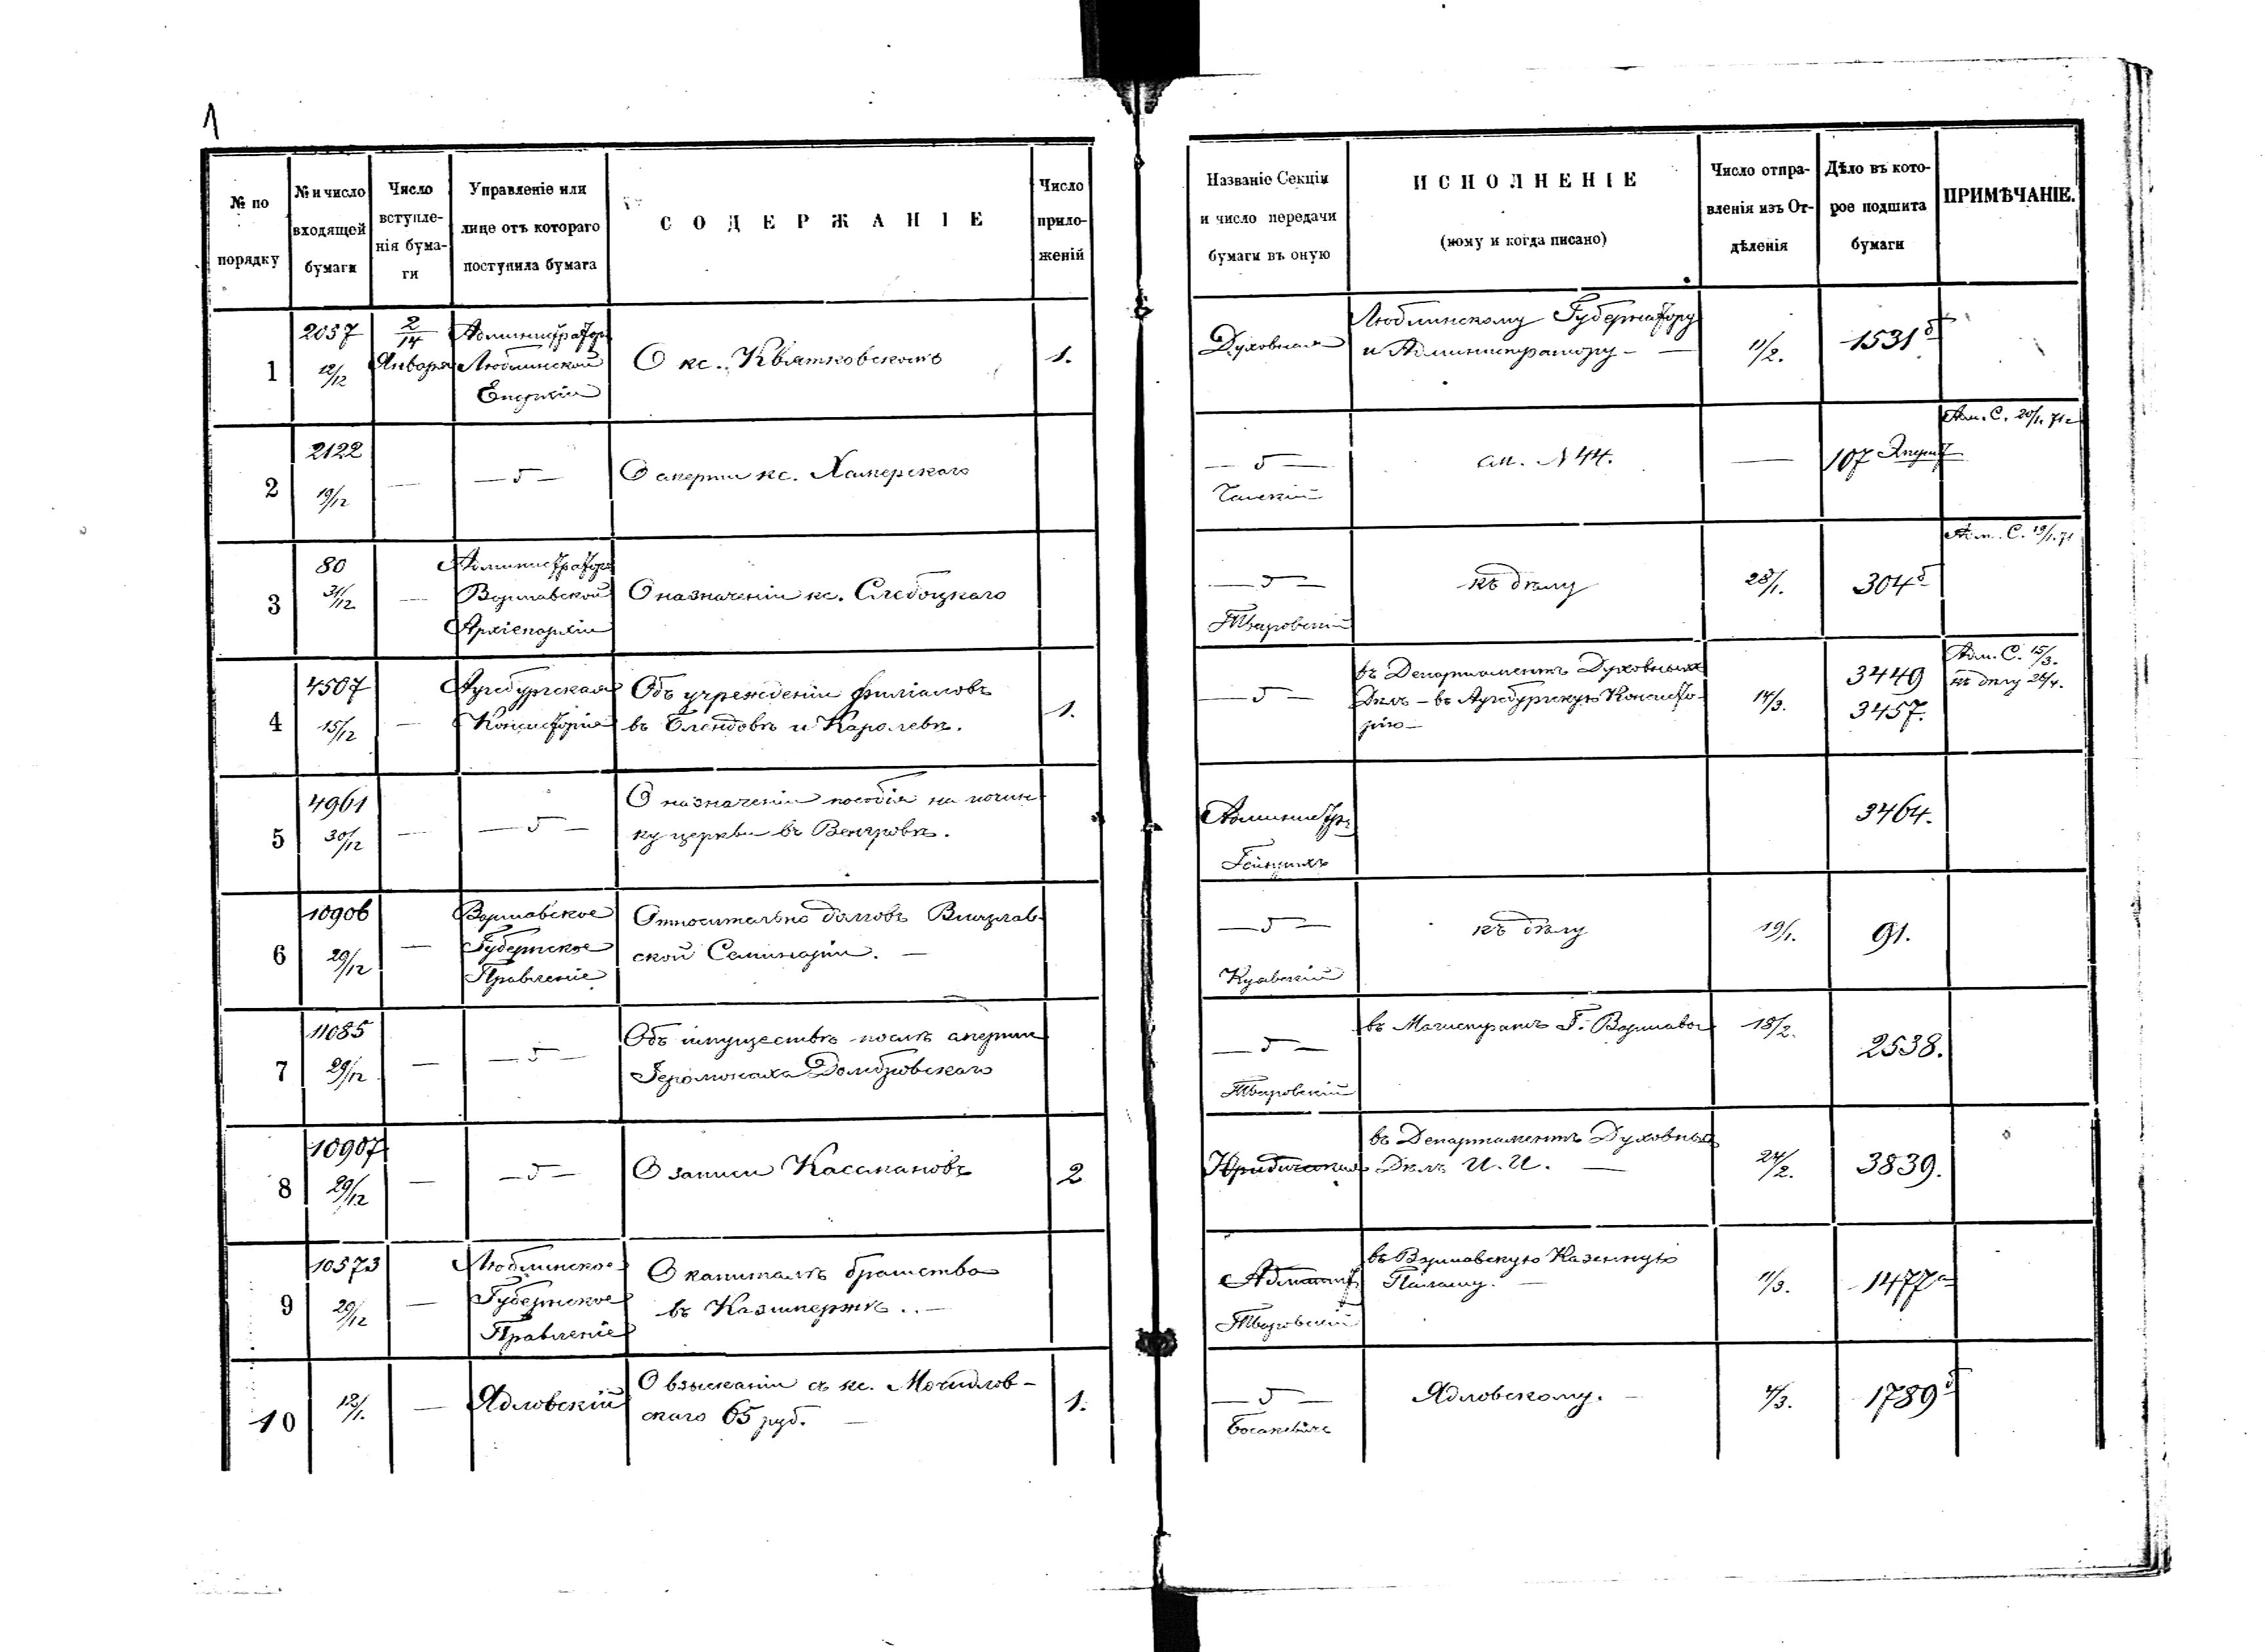 1
№ по порядку
№ и число входящей бумаги
Число вступле-нія бума-ги
Управленіе или лице отъ котораго поступила бумага
СОДЕРЖАНІЕ
Число прило-женій
Названіе Секціи и число передачи бумаги въ оную
ИСПОЛНЕНІЕ
(кому и когда писано)
Число отпра-вленія изъ От-дѣленія
Дѣло въ кото-рое подшита бумаги
ПРИМѢЧАНІЕ.
1
2057
12/12
2/14 Января
Администраторъ
Люблинской
Епархіи
О кс. Квятковскомъ
1.
Духовная
Люблинскому Губернатору
и Администратору —
11/2.
1531 б
2
2122
19/12
—
— „ —
О смерти кс. Хамерскаго
— „ —
см. N 44.
—
107
Адм. С. 20/1. 71 г
3
80
31/12
—
Администраторъ
Варшавской
Архіепархіи
О назначеніи кс. Следоцкаго
— „ —
Тваровскій
къ дѣлу
28/1.
304 б
Адм. С. 19/1. 71
4
4507
15/12
—
Аугсбургская
Консисторія
Объ учрежденіи филіаловъ
въ Блендовѣ и Каролевѣ.
1.
— „ —
въ Департаментъ Духовныхъ
Дѣлъ – въ Аугсбургскую Консисто-
рію —
14/3.
3449
3457.
Адм. С. 15/3.
къ дѣлу 26/4.
5
4961
30/12
—
— „ —
О назначеніи пособія на почин-
ку церкви въ Венгровѣ.
Администр.
3464.
6
10906
29/12
—
Варшавское
Губернское
Правленіе
Относительно долговъ Влоцлав-
ской Семинаріи. —
— „ —
Куявскій
къ дѣлу
19/1.
91.
7
11085
29/12
—
— „ —
Объ имуществѣ послѣ смерти
Іеромонаха Домбровскаго
— „ —
Тваровскій
въ Магистратъ Г. Варшавы
18/2.
2538.
8
10907
29/12
—
— „ —
О записи Касмановъ
2
Юридическая
въ Департаментъ Духовныхъ
Дѣлъ И. И. —
24/2.
3839.
9
10573
29/12
—
Люблинское
Губернское
Правленіе
О капиталѣ братства
въ Казимержѣ. —
Админист
Тваровскій
въ Варшавскую Казенную
Палату. —
11/3.
1477 а
10
12/1.
—
Ядловскій
О взысканіи съ кс. Мочидлов-
скаго 65 руб. —
1.
— „ —
Ядловскому. —
4/3.
1789 б